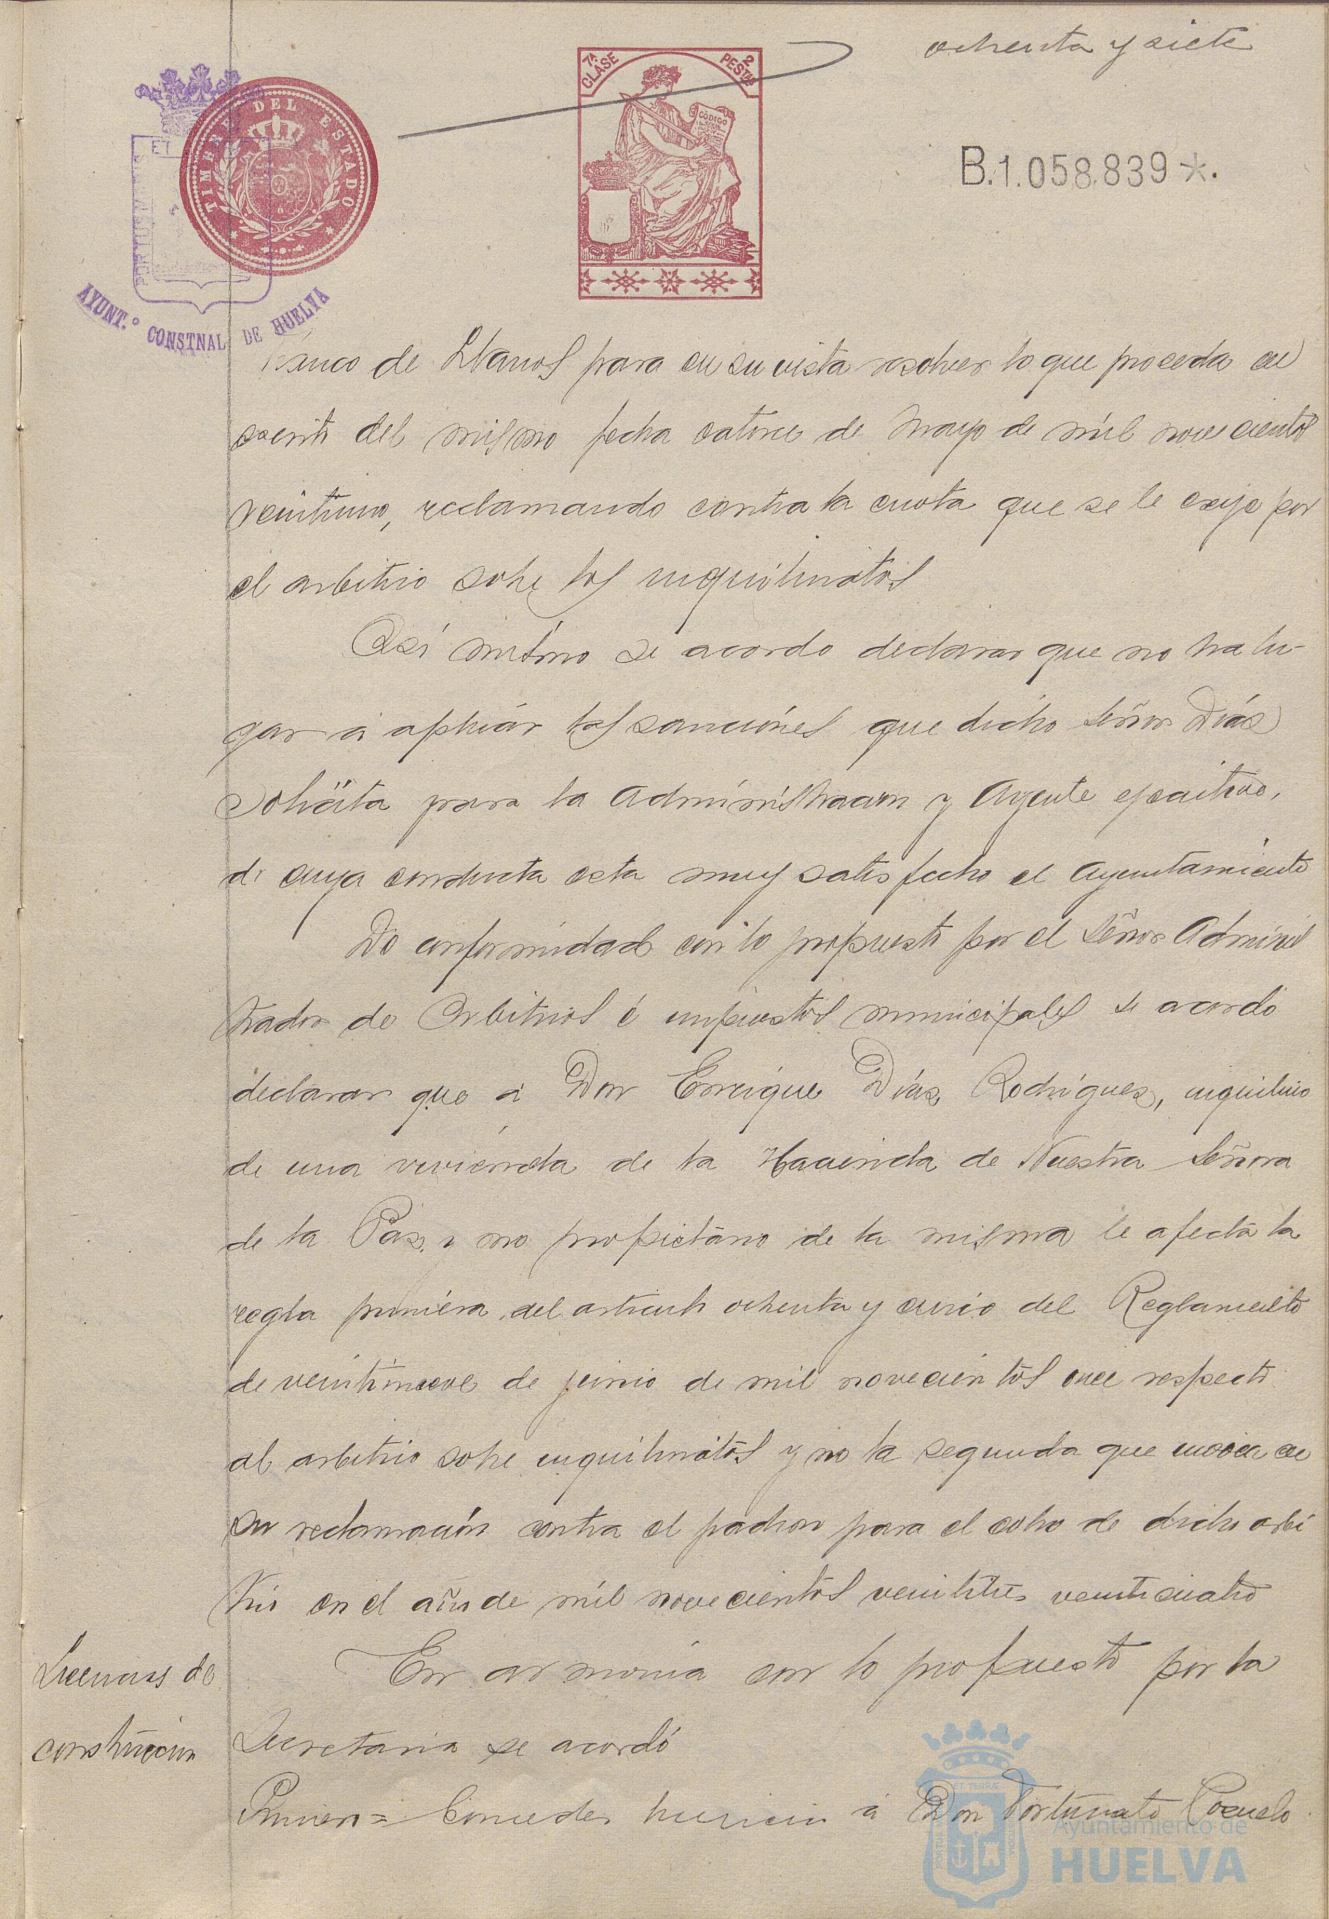 ochenta y siete
7ª CLASE
2 PESTAS
CÓDIGO
TIMBRE DEL ESTADO
B.1.058.839*.
AYUNT.º CONSTNAL DE HUELVA
de Llanos para en su vista resolver lo que proceda en
escrito del mismo fecha catorce de Mayo de mil novecientos
veintiuno, reclamando contra la cuota que se le exije por
el arbitrio sobre los inquilinatos
Así mismo se acordo declarar que no ha lu-
gar á aplicar las sanciones que dicho Señor Diás
solicita para la Administracion y Agente ejecutivo,
de cuya conducta esta muy satisfecho el Ayuntamiento
De conformidad con lo propuesto por el Señor Adminis
trador de Arbitrios é impuestos municipales se acordó
declarar que á Don Enrique Diás Rodrigues, inquilino
de una vivienda de la Hacienda de Nuestra Señora
de la Pas, y no propietario de la misma le afecta la
regla primera del articulo ochenta y cinco del Reglamento
de veintinueve de junio de mil novecientos once respecto
al arbitrio sobre inquilinatos y no la segunda que invoca en
su reclamación contra el padron para el cobro de dicho arbi
trio en el año de mil novecientos veintitres veinticuatro
Licencias de
construccion
En armonia con lo propuesto por la
Secretaria se acordó
Primero = Conceder licencia á Don Fortunato Pozuelo
Ayuntamiento de
HUELVA